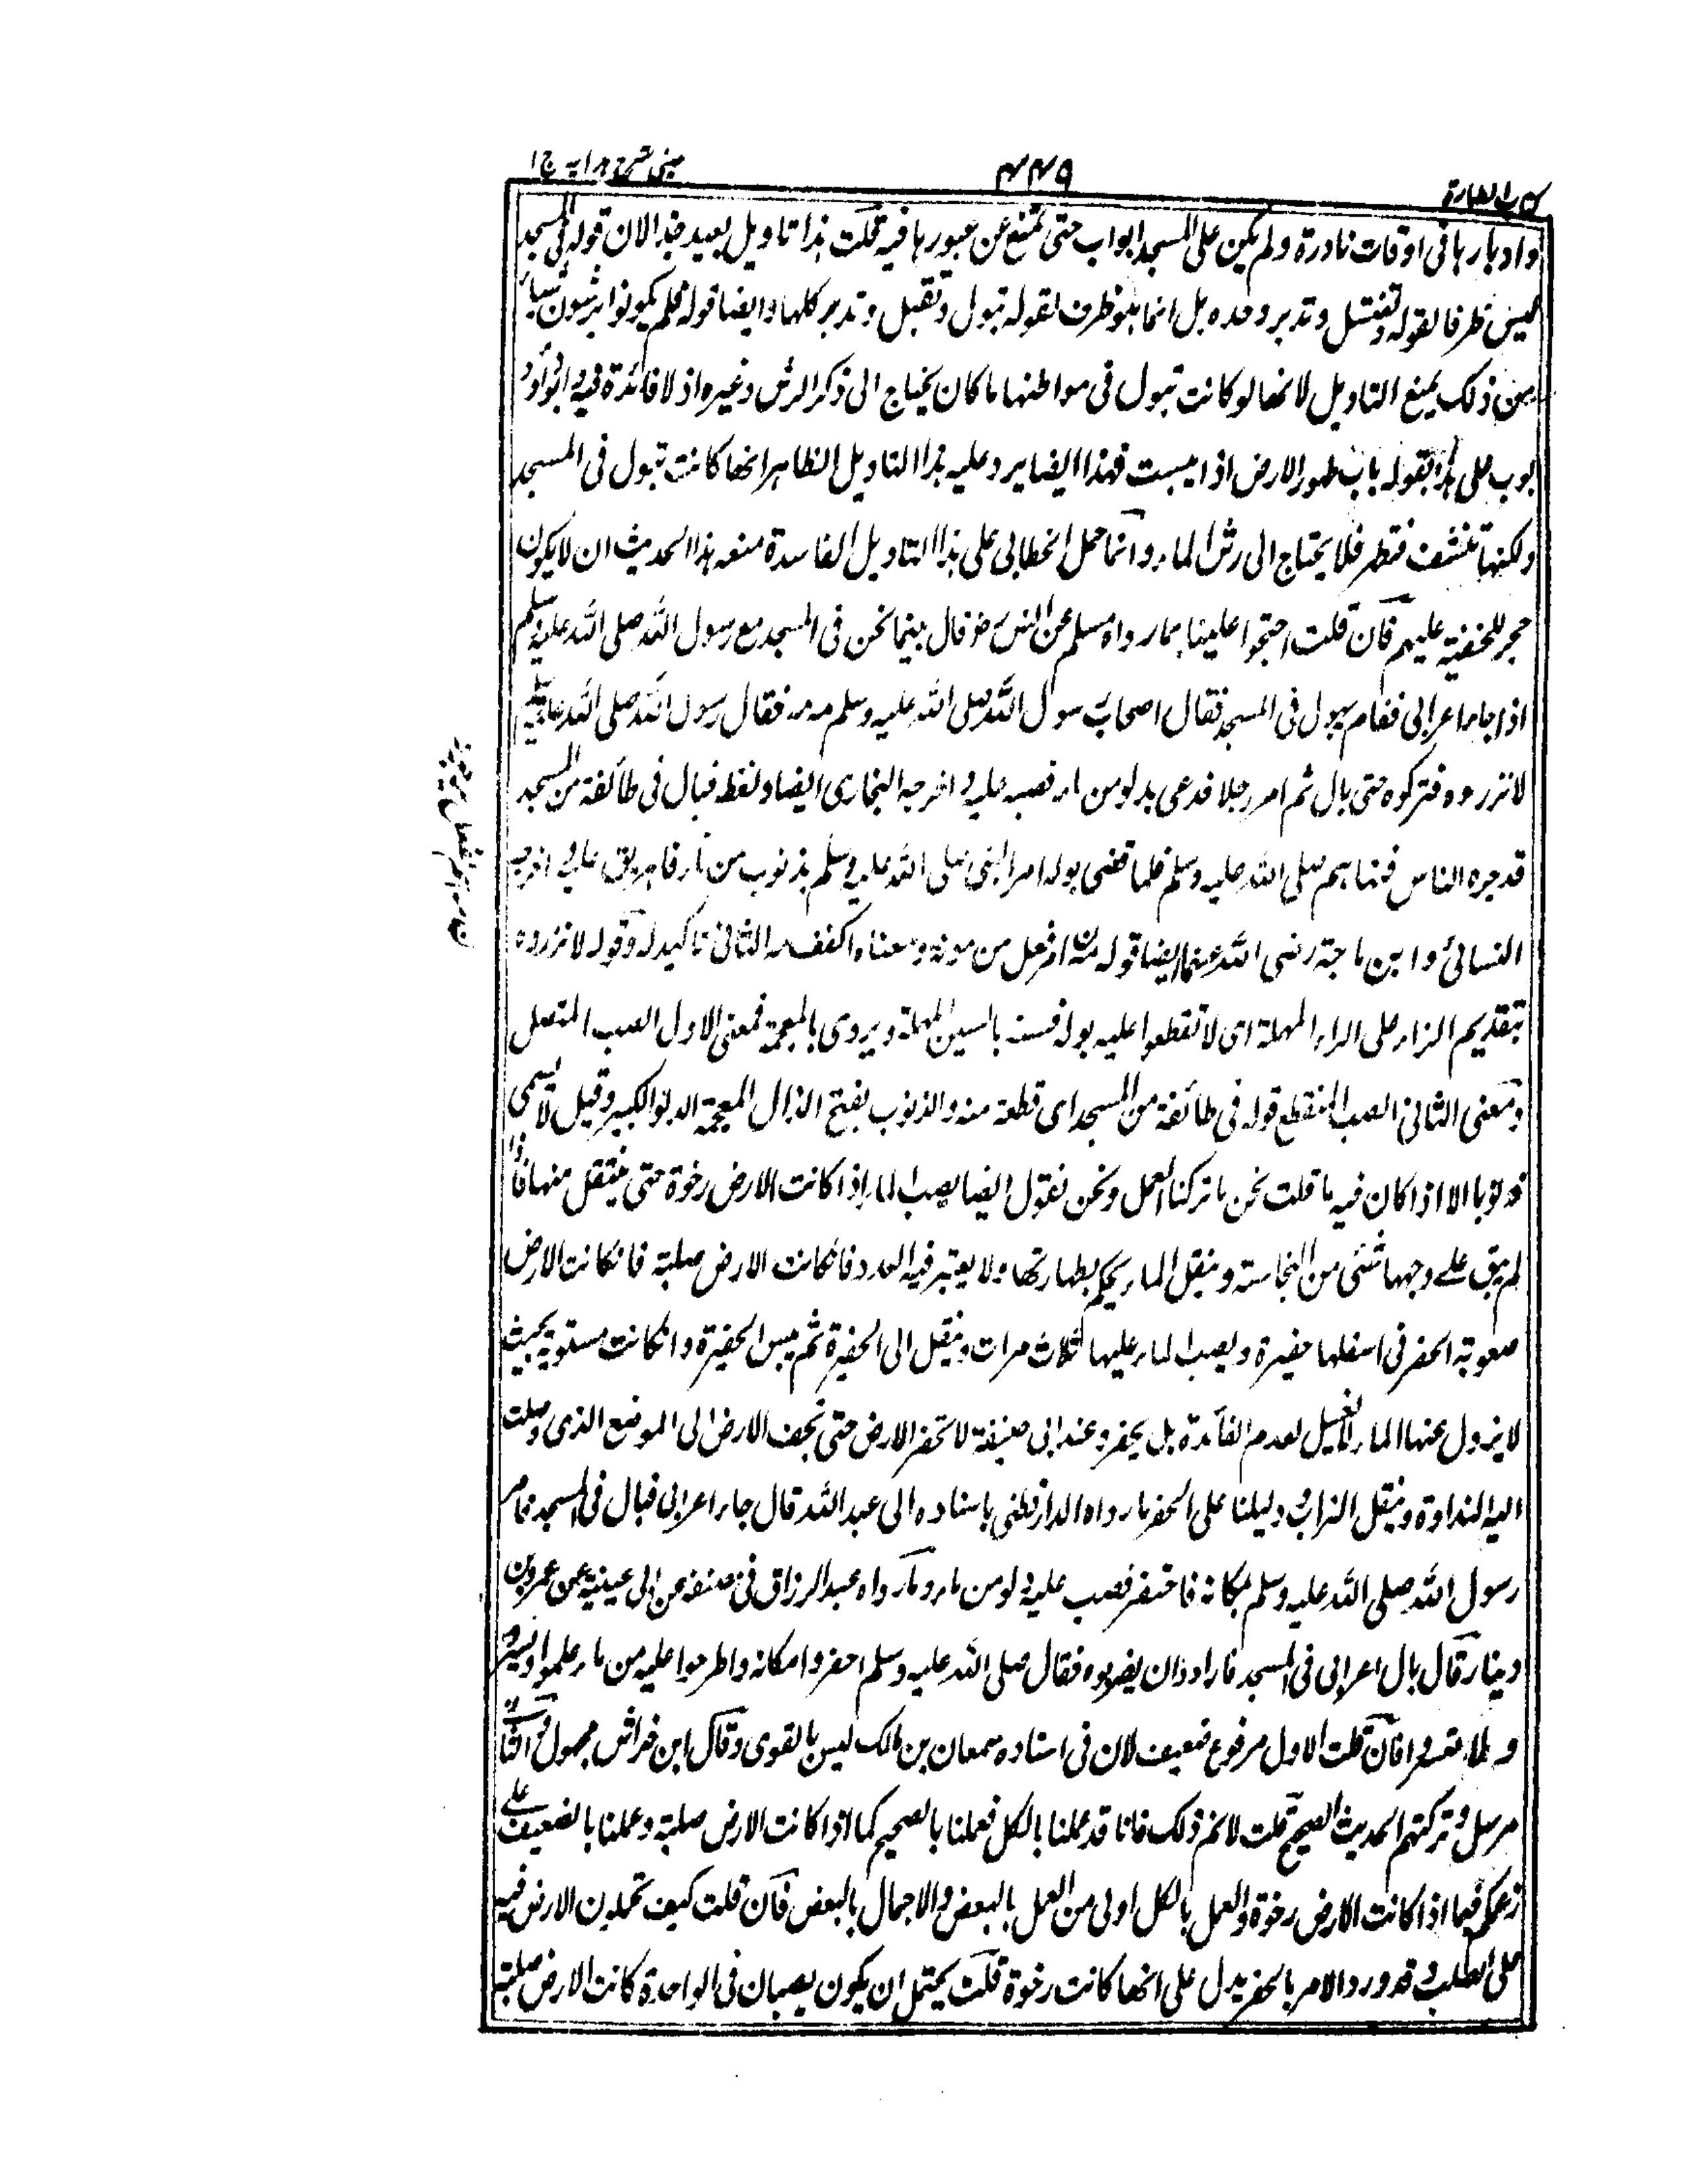 كتاب الطهارة
٤٤٩
عینی شرح هدایه ج ١
وادبارها فى اوقات نادرة ولم يكن على المسجد ابواب حتى تمنع عن عبورها فيه قلت هذا تاويل بعيد جدا لان قوله فى المسجد
ليس ظرفا لقوله وتقبل وتدبر وحده بل انما هو ظرف لقوله تبول وتقبل وتدبر كلها وايضا قوله فلم يكونوا يرشون شيئا
من ذلك يمنع التاويل لانها لو كانت تبول فى مواطنها ما كان يحتاج الى ذكر الرش وغيره اذ لا فائدة فيه وابو داود
بوب على هذا بقوله باب طهور الارض اذا يبست فهذا ايضا يرد عليه هذا التاويل الظاهر انها كانت تبول فى المسجد
ولكنها تنشف فتطهر فلا يحتاج الى رش الماء وانما حمل الخطابى على هذا التاويل الفاسد منعه هذا الحديث ان لا يكون
حجر للحنفية عليهم فان قلت احتجوا علينا بما رواه مسلم عن انس رضـ قال بينما نحن فى المسجد مع رسول الله صلى الله عليه وسلم
اذ جاء اعرابى فقام يبول فى المسجد فقال اصحاب رسول الله صلى الله عليه وسلم مه مه فقال رسول الله صلى الله عليه وسلم
لا تزرموه فتركوه حتى بال ثم امر رجلا فدعى بدلو من ماء فصبه عليه واخرجه البخارى ايضا ولفظه فبال فى طائفة من المسجد
فزجره الناس فنهاهم صلى الله عليه وسلم فلما قضى بوله امر النبى صلى الله عليه وسلم بذنوب من ماء فاهريق عليه واخرجه
النسائى وابن ماجة رضى الله عنهما ايضا قوله مه امر فعل من مونه ومعناه اكفف مه الثانى تاكيد له وقوله لا تزرموه
بتقديم الزاء على الراء المهملة اى لا تقطعوا عليه بوله فسنه بالسين المهملة ويروى بالمعجمة فمعنى الاول الصب المتصل
ومعنى الثانى الصب المنقطع قوله فى طائفة من المسجد اى قطعة منه والذنوب بفتح الذال المعجمة الدلو الكبير وقيل لا تسمى
ذنوبا الا اذا كان فيه ما قلت نحن ما تركنا العمل ونحن نقول ايضا يصب الماء اذا كانت الارض رخوة حتى ينتقل منها فاذا
لم يبق على وجهها شئى من النجاسة وينقل الماء يحكم بطهارتها ولا يعتبر فيه العدد فانكانت الارض صلبة فانكانت الارض
صعوبة الحفر فى اسفلها حفيرة ويصب الماء عليها ثلاث مرات وينقل الى الحفيرة ثم يبس الحفيرة وانكانت مستوية بحيث
لا يزول عنها الماء لا يغسل لعدم الفائدة بل يحفر وعند ابى حنيفة لا تحفر الارض حتى تجف الارض الى الموضع الذى وصلت
اليه النداوة وينقل التراب ودليلنا على الحفر ما رواه الدارقطنى باسناده الى عبد الله قال جاء اعرابى فبال فى المسجد فامر
رسول الله صلى الله عليه وسلم بمكانه فاحتفر فصب عليه دلو من ماء وما رواه عبد الرزاق فى مصنفه عن ابى عيينة عن عمرو بن
دينار قال بال اعرابى فى المسجد فارادوا ان يضربوه فقال صلى الله عليه وسلم احفروا مكانه واطرحوا عليه من ماء علموا ويسروا
ولا تعسروا فان قلت الاول مرفوع ضعيف لان فى اسناده سمعان بن مالك ليس بالقوى وقال ابن خراش مجهول والثانى
مرسل وتركتم الحديث الصحيح قلت لا نم ذلك فانا قد عملنا بالكل فعملنا بالصحيح كما اذا كانت الارض صلبة وعملنا بالضعيف على
زعمكم فيما اذا كانت الارض رخوة والعمل بالكل اولى من العمل بالبعض والاهمال بالبعض فان قلت كيف تحملون الارض فيه
على الصلب وقد ورد الامر بالحفر يدل على انها كانت رخوة قلت يحتمل ان يكون يصبان فى الواحدة كانت الارض صلبة